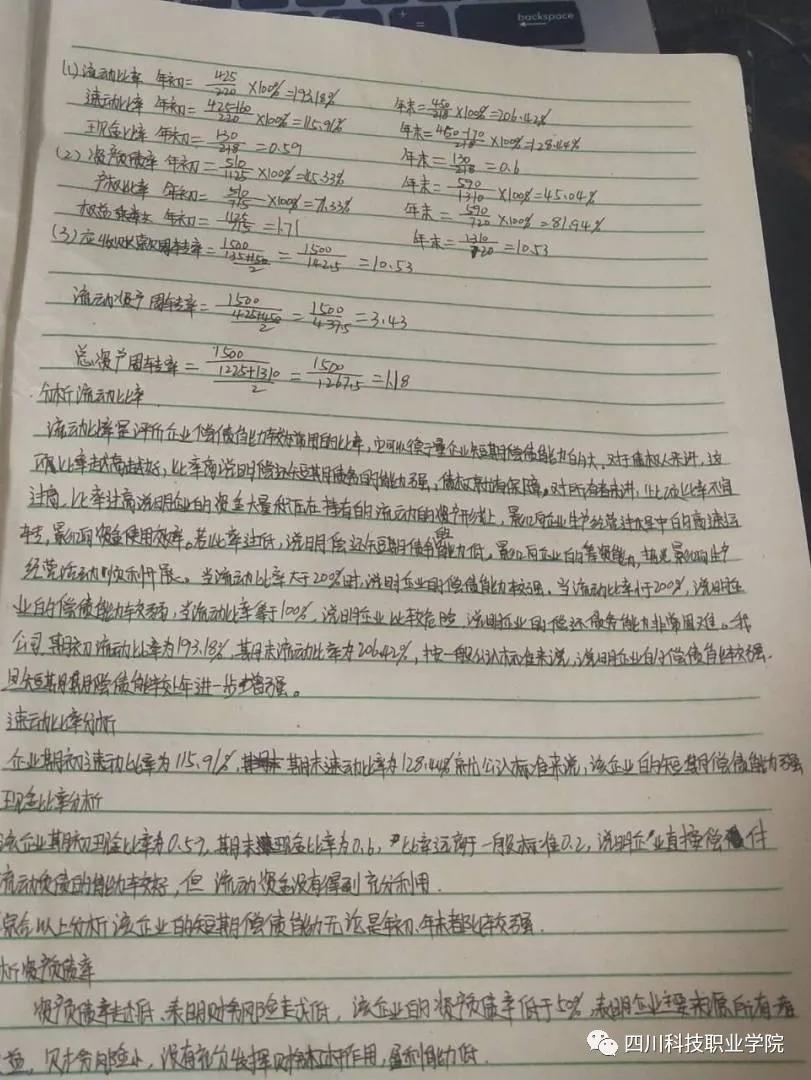 backspace
(1) 流动比率 年初= 425/220 ×100%=193.18% 年末=450/218×100%=206.42%
速动比率 年初= 425-160/220 ×100%=115.91% 年末=450-170/218×100%=128.44%
现金比率 年初= 130/218 =0.59 年末=130/218=0.6
(2) 资产负债率 年初= 510/1125 ×100%=45.33% 年末=590/1310×100%=45.04%
产权比率 年初= 510/715 ×100%=71.33% 年末= 590/720 ×100%=81.94%
权益乘数 年初= =1.71 年末= 1310/720 =10.53
(3) 应收账款周转率= 1500/(135+150)/2 = 1500/142.5 =10.53
流动资产周转率= 1500/(425+450)/2 = 1500/437.5 =3.43
总资产周转率= 1500/(1225+1310)/2 = 1500/1267.5 =1.18
分析流动比率
流动比率是评价企业偿债能力较为常用的比率,它可以衡量企业短期偿债能力的大,对于债权人来讲,这
项比率越高越好,比率高说明偿还短期债务的能力强,债权就有保障。对所有者来讲,此项比率不宜
过高,比率过高说明企业的资金大量积压在持有的流动的资产形线上,影响企业生产经营过程中的高速运
转,影响资金使用效率。若比率过低,说明偿还短期债务能力低。影响企业的筹资能力,势必影响生产
经营活动顺利开展。当流动比率大于200%时,说明企业的偿债能力较强,当流动比率小于200%,说明企
业的偿债能力较弱,当流动比率等于100%,说明企业比较危险,说明企业的偿还债务能力非常困难。我
公司期初流动比率为193.18%,期末流动比率为206.42%,按一般公认标准来说,说明企业的偿债能力较强.
且短期偿债能力较上年进一步增强。
速动比率分析
企业期初速动比率为115.91%,期末速动比率为128.44%就公认标准来说,该企业的短期偿债能力强
现金比率分析
该企业期初现金比率为0.59,期末现金比率为0.6,比率远高于一般标准0.2,说明企业直接偿付
流动负债的能力较好,但流动资金没有得到充分利用.
综合以上分析该企业的短期偿债能力无论是年初、年末都比较强.
析资产负债率
资产负债率越低,表明财务风险越低,该企业的资产负债率低于50%,表明企业主要来源所有者
益,财务风险小,没有充分发挥财务杠杆作用,盈利能力低.
四川科技职业学院